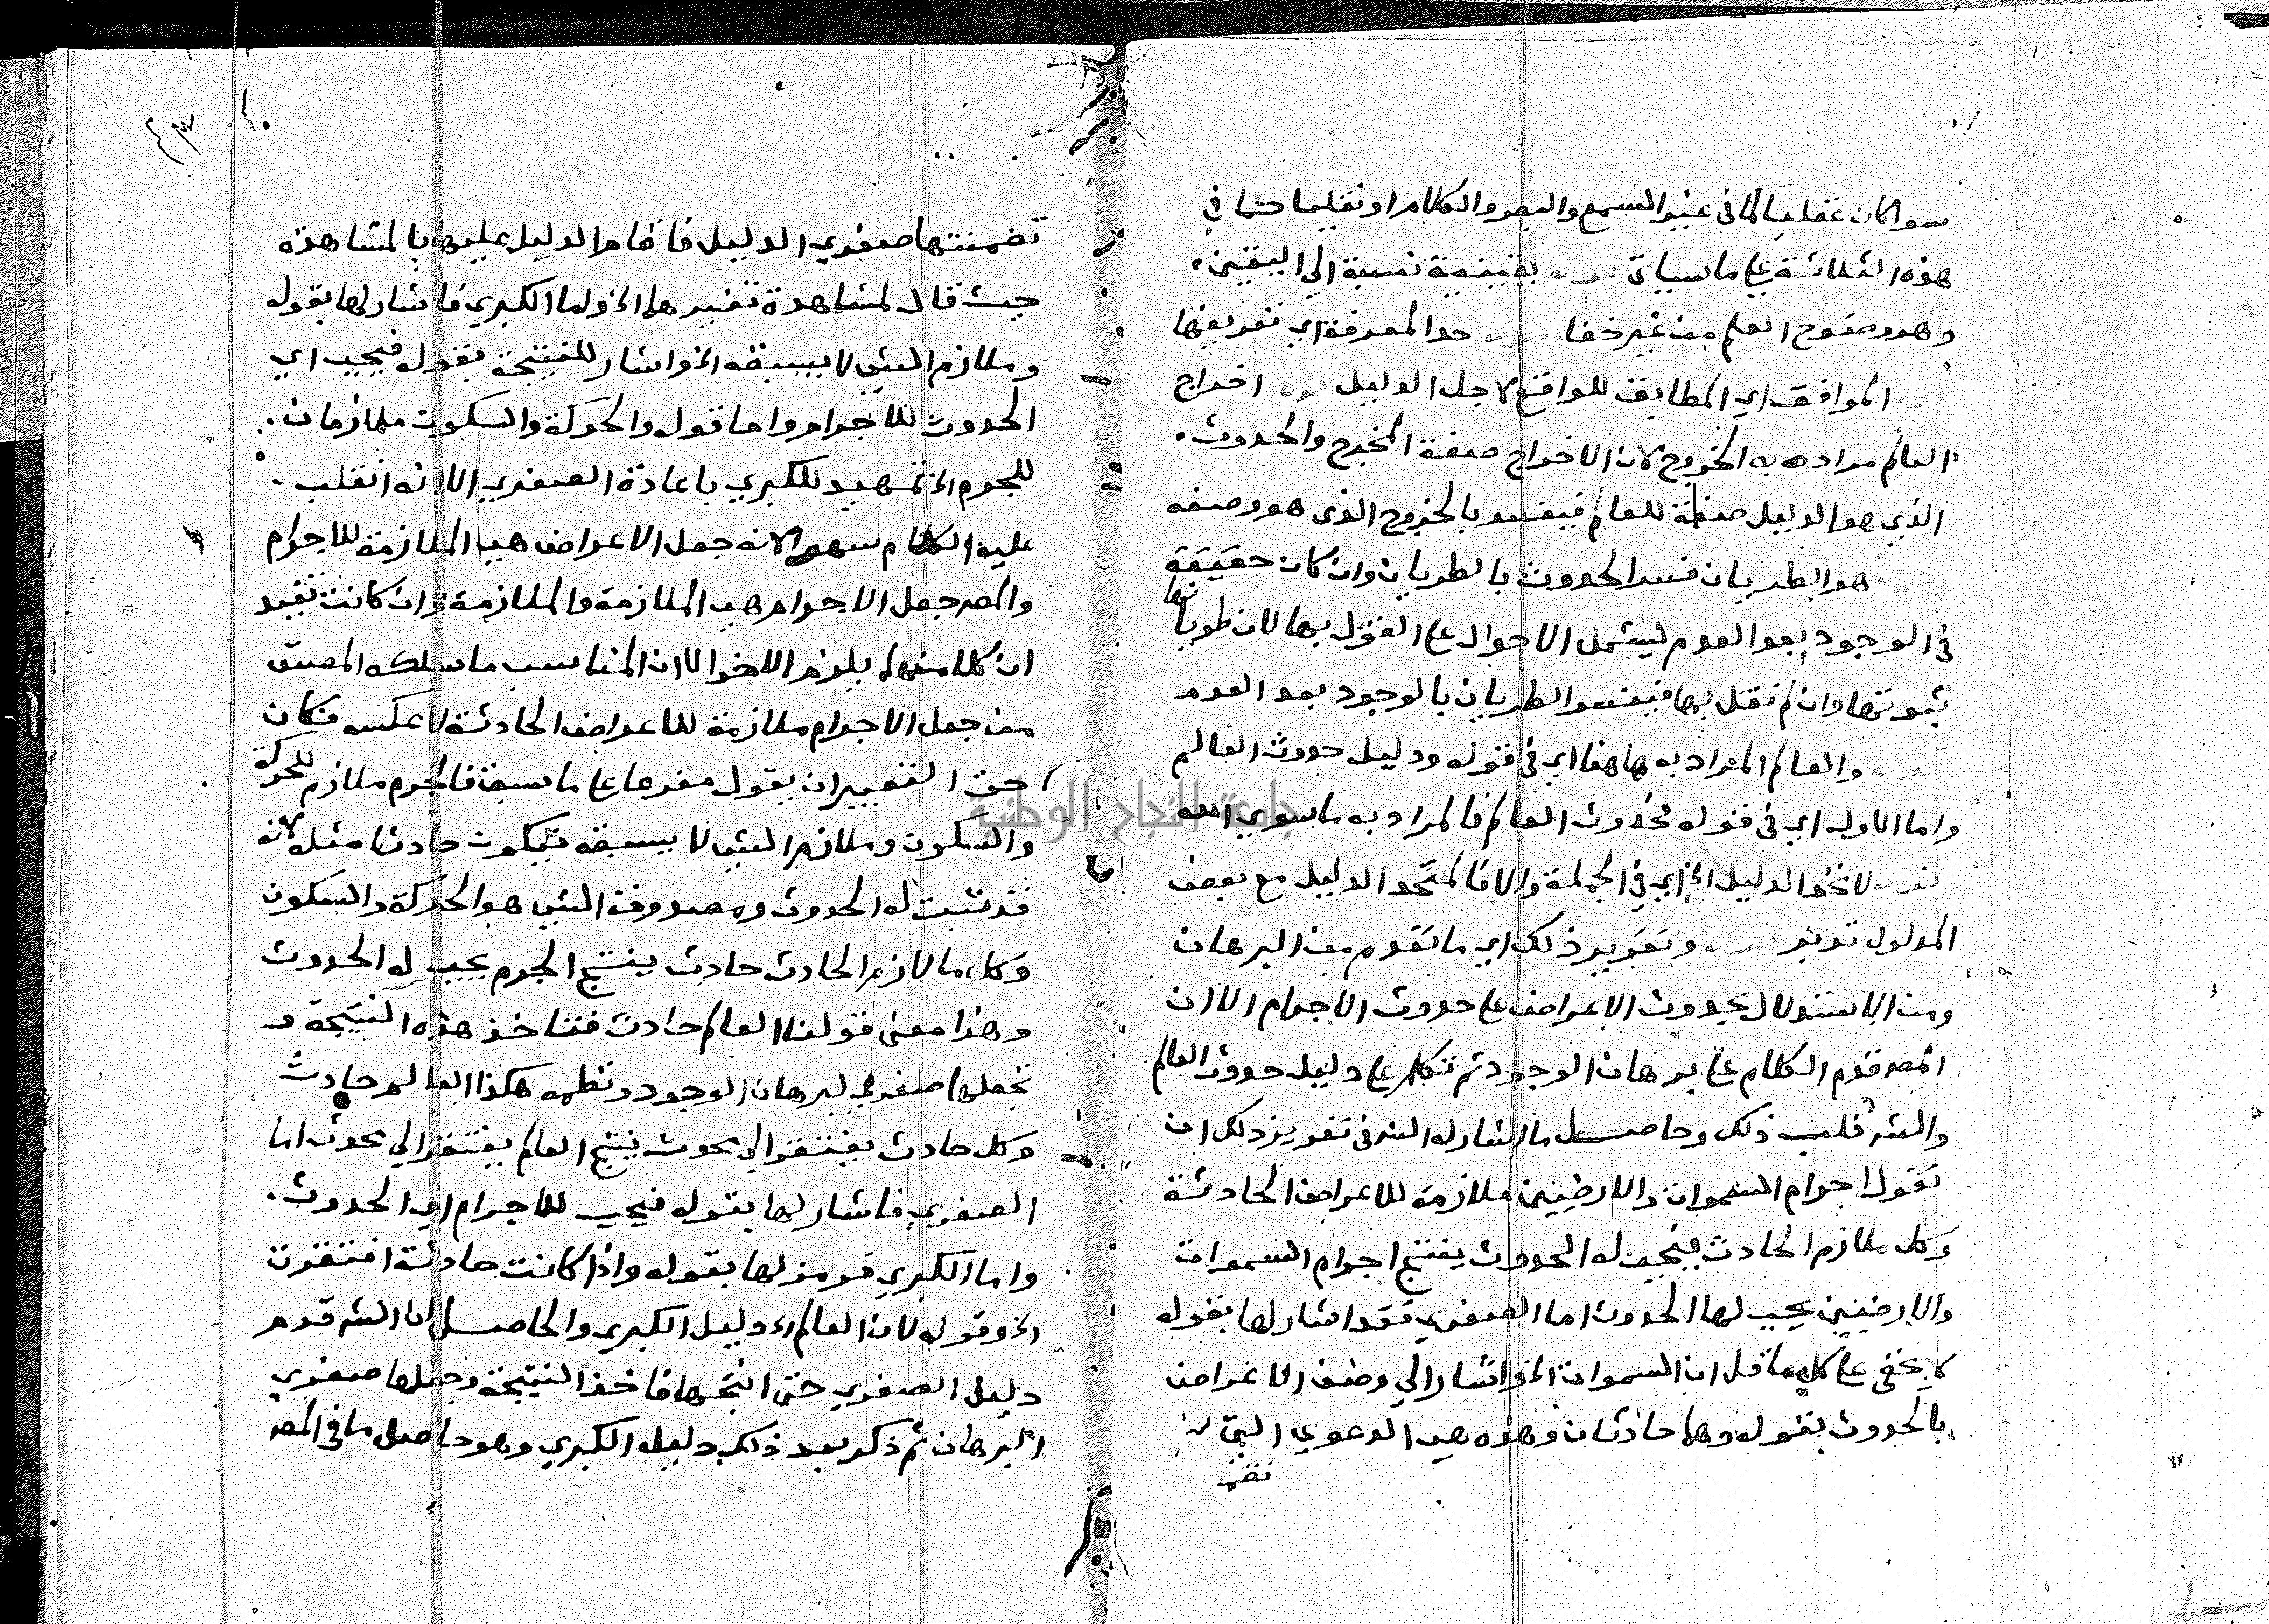 سواكان عقليا كما فى غير السمع والبصر والكلام او نقليا كما في
هذه الثلاثة على ما سياتي يقينية نسبة الى اليقين
وهو وضوح العلم من غير خفا حد المعرفة اي تعريفها
الموافق اي المطابق للواقع لاجل الدليل اخراج
العالم مراده به الخروج لان الاخراج صفة المخرج والحدوث
الذي هو الدليل صفة للعالم فيفسر بالخروج الذي هو وصفه
هو الطريان فسر الحدوث بالطريان وان كان حقيقة
فى الوجود بعد العدم ليشمل الاحوال على القول بها لان طريانها
ثبوتها وان لم نقل بها فيفسر الطريان بالوجود بعد العدم
والعالم المراد به هاهنا اي فى قوله ودليل حدوث العالم
واما الاول اي فى قوله محدوث العالم فالمراد به ما سوي الله
لاتحد الدليل الخ اي في الجملة والا فالمتحد الدليل مع بعض
المدلول تدبر وتقرير ذلك اي ما تقدم من البرهان
ومن الاستدلال بحدوث الاعراض على حدوث الاجرام الا ان
المصه قدم الكلام على برهان الوجود ثم تكلم على دليل حدوث العالم
والشه قلب ذلك وحاصل ما اشار له الشه فى تقرير ذلك ان
تقول اجرام السموات والارضين ملازمة للاعراض الحادثة
وكل ملازم الحادث يجب له الحدوث ينتج اجرام السموات
والارضين يجب لها الحدوث اما الصغري فقد اشار لها بقوله
لا يخفى على كل عاقل ان السموات الخ واشار الى وصف الاعراض
بالحدوث بقوله وهما حادثان وهذه هي الدعوي التي
تضمنتها صغري الدليل فاقام الدليل عليها بالمشاهدة
حيث قال لمشاهدة تغيرهما الخ واما الكبري فاشار لها بقوله
وملازم الشي لا يسبقه الخ واشار للنتيجة بقوله فيجب اي
الحدوث للاجرام واما قوله والحركة والسكون ملازمان
للجرم الخ تمهيد للكبري باعادة الصغري الا انه انقلب
عليه الكلام سهوا لانه جعل الاعراض هي الملازمة للاجرام
والمصه جعل الاجرام هي الملازمة والملازمة وان كانت تفيد
ان كلا منهما يلزم الاخر الا ان المناسب ما سلكه المصن
من جعل الاجرام ملازمة للاعراض الحادثة لا عكسه فكان
حق التعبير ان يقول مفرعا على ما سبق فالجرم ملازم للحركة
والسكون وملازم الشي لا يسبقه فيكون حادثا مثله لانه
قد ثبت له الحدوث ومصدوقة الشي هو الحركة والسكون
وكل ما لازم الحادث حادث ينتج الجرم يجب له الحدوث
وهذا معنى قولنا العالم حادث فتاخذ هذه النتيجة و
تجعلها صغري لبرهان الوجود ونظمه هكذا العالم حادث
وكل حادث يفتقر الي محدث ينتج العالم يفتقر الي محدث اما
الصغري فاشار لها بقوله فيجب للاجرام اي الحدوث
واما الكبري فرمز لها بقوله واذا كانت حادثة افتقرت
الخ وقوله لان العالم الخ دليل الكبري والحاصل ان الشه قدم
دليل الصغري حتى انتجها فاخذ النتيجة وجعلها صغري
البرهان ثم ذكر بعد ذلك دليل الكبري وهو حاصل ما فى المصه
جامعة النجاح الوطنية